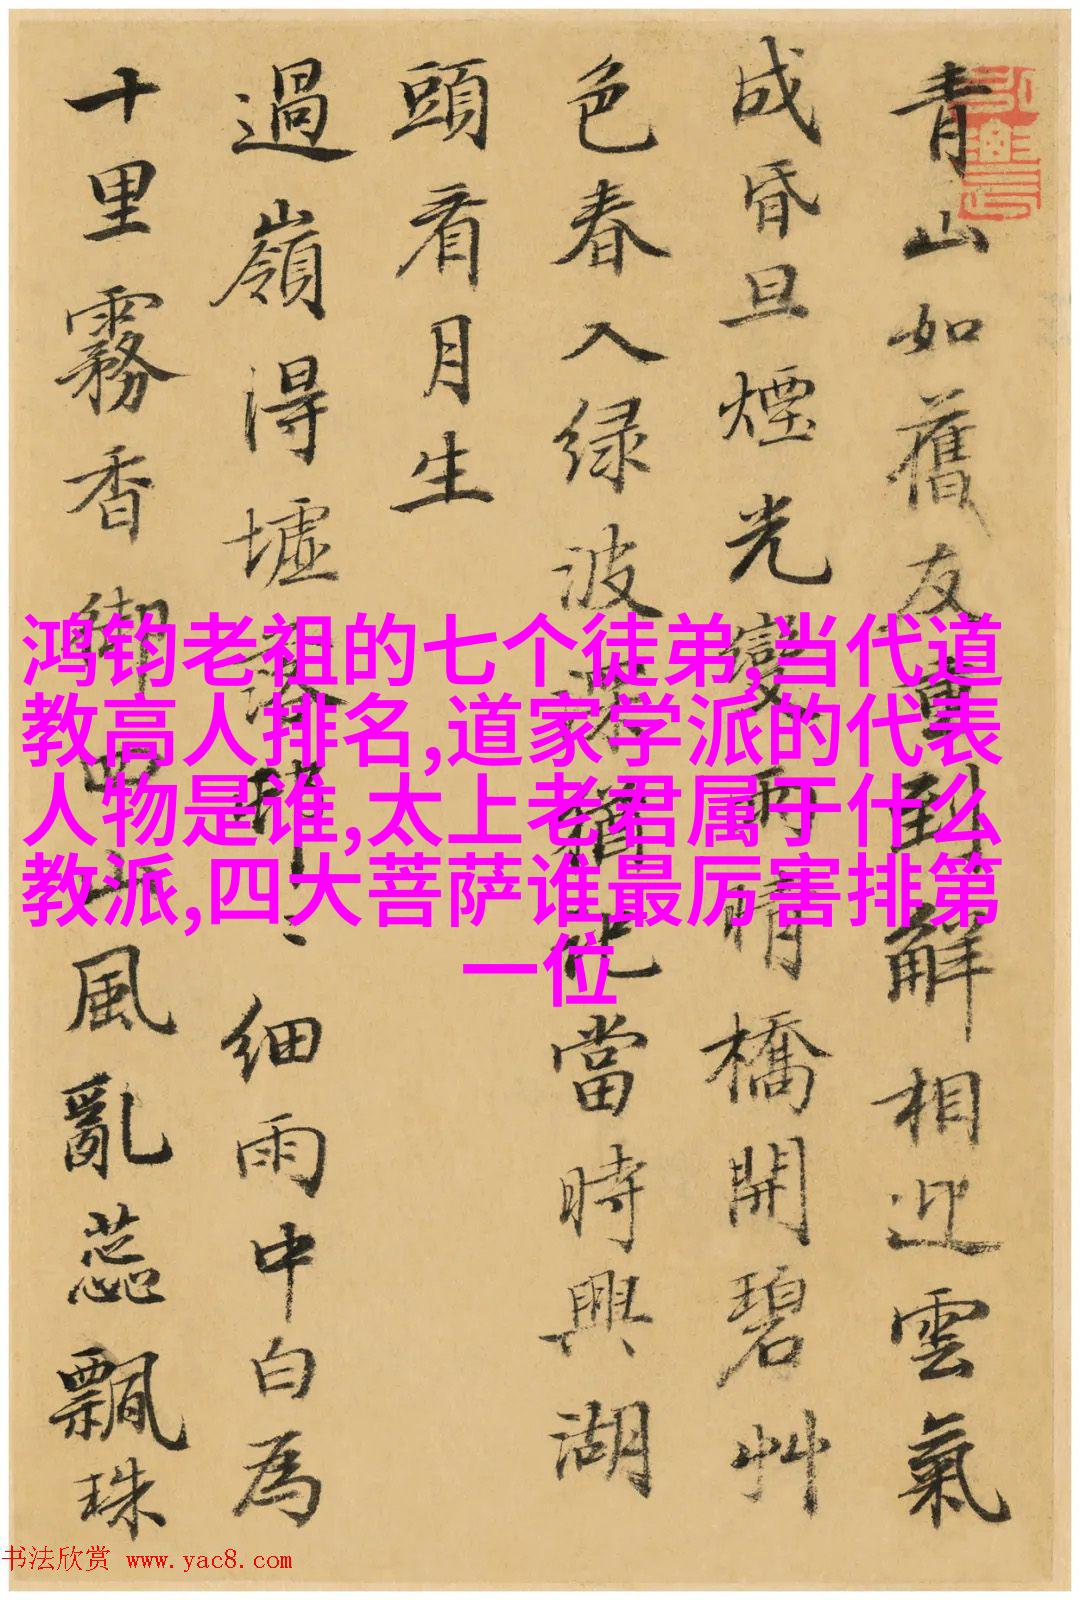 青山如舊友重到解相迎雲氣
成昏旦煙光變雨晴橋開碧艸
色春入绿波當時興湖
頭看月生
過嶺得墟落細雨中白為
十里霧香山風亂蕊飄珠
鸿钧老祖的七个徒弟,当代道
教高人排名,道家学派的代表
人物是谁,太上老君属于什么
教派,四大菩萨谁最厉害排第
一位
书法欣赏 www.yac8.com